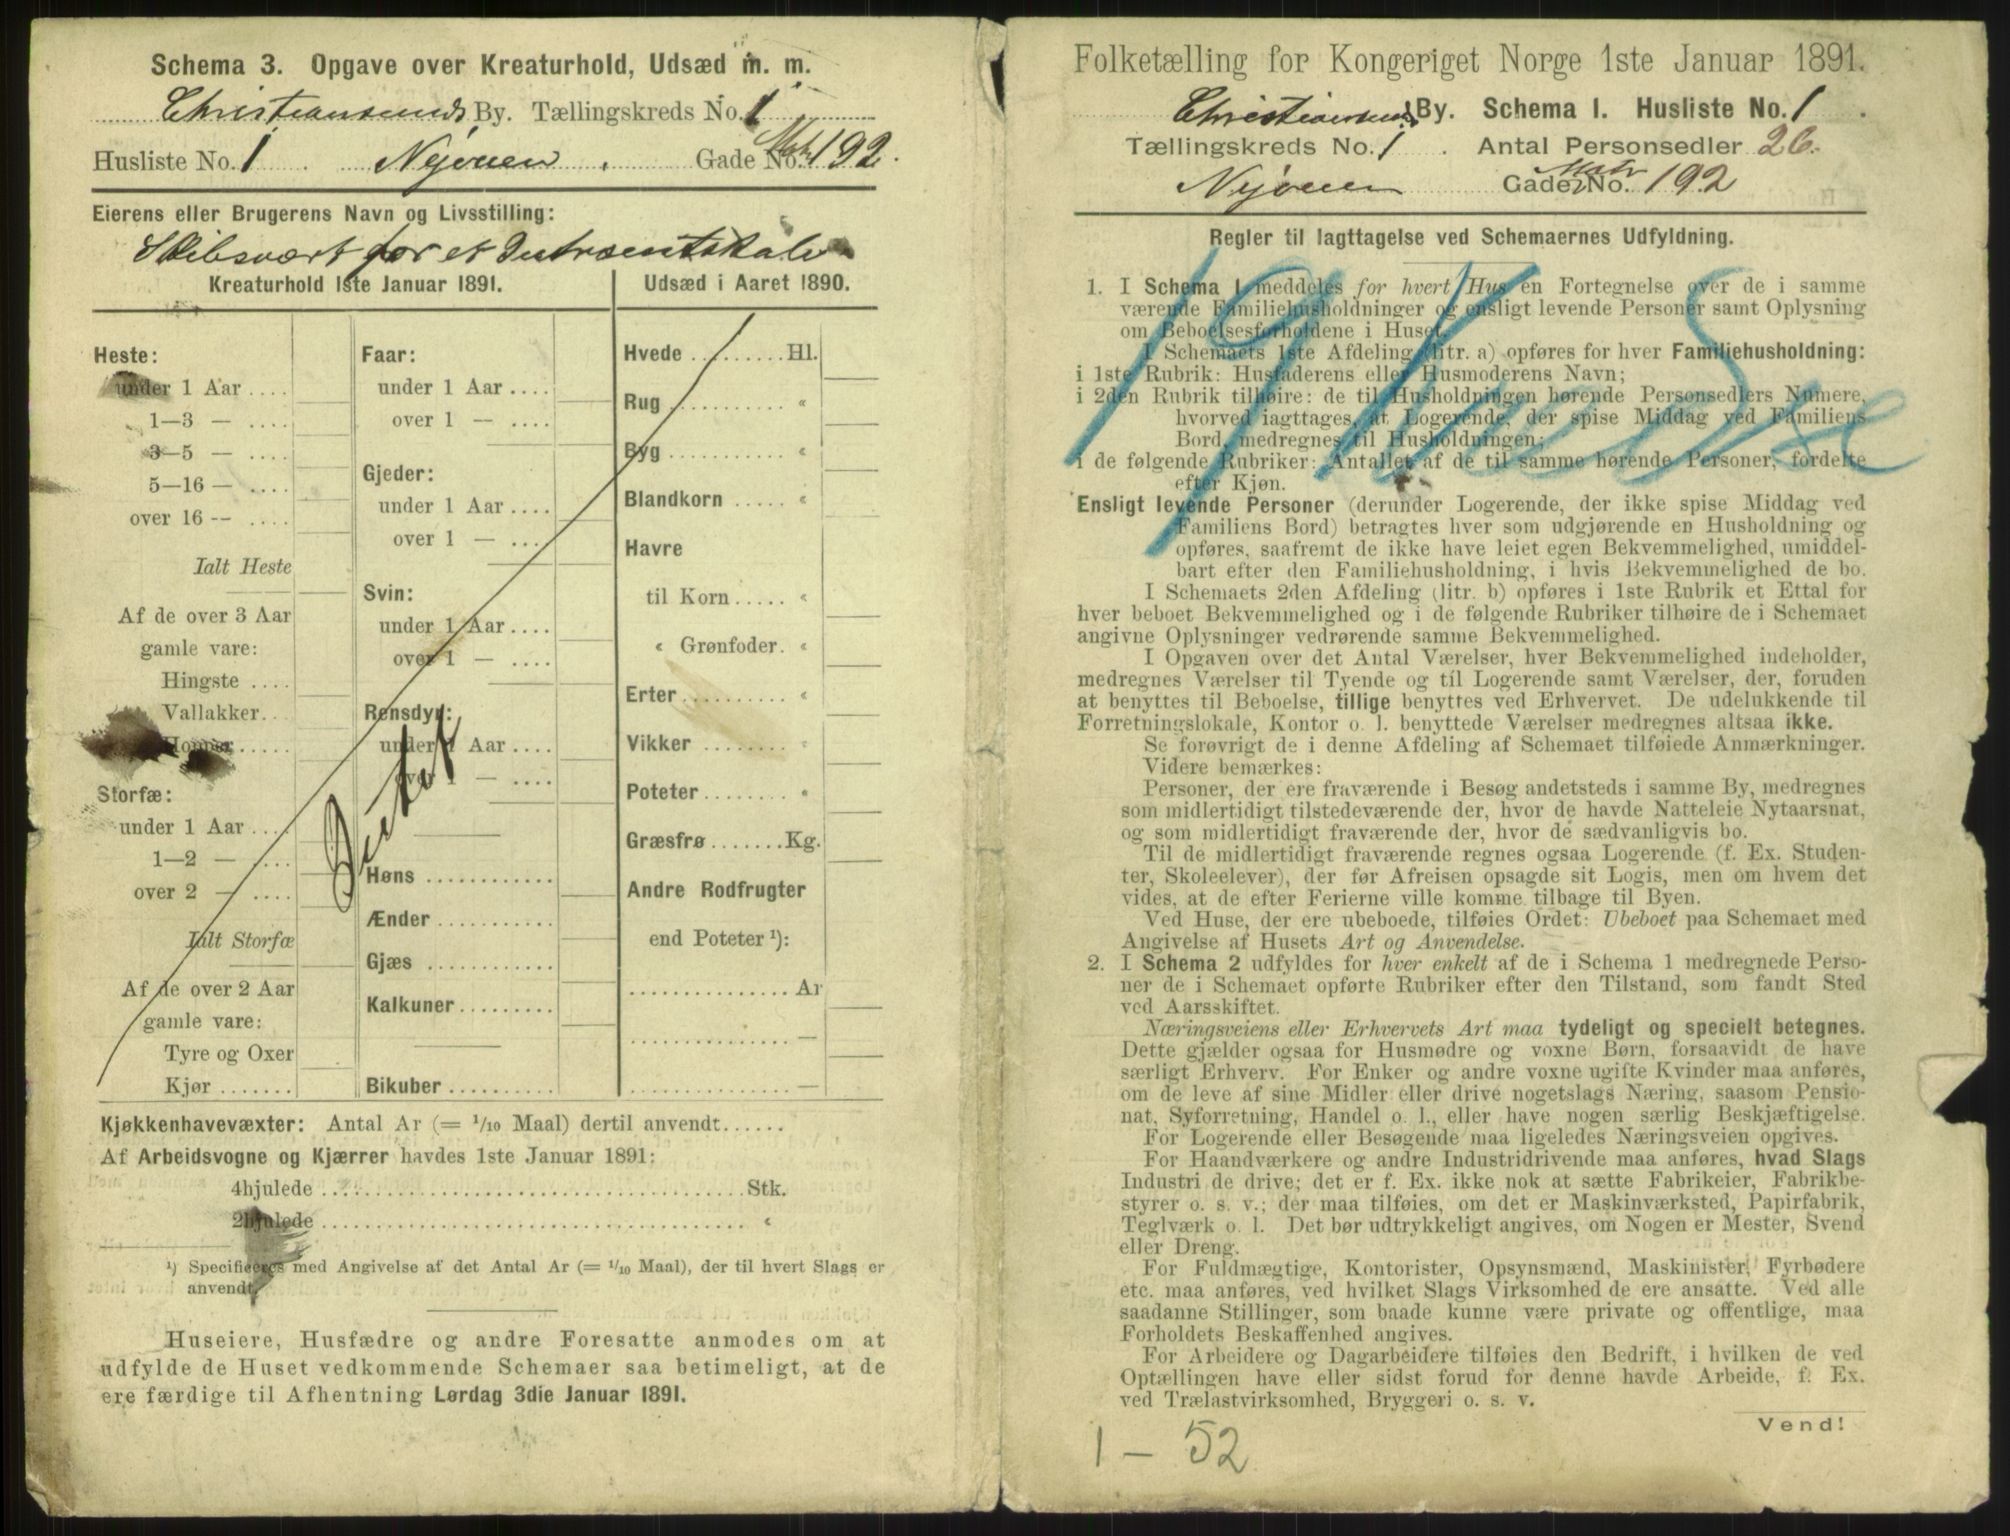 Schema 3. Opgave over Kreaturhold, Udsæd m. m.
Christianssunds By. Tællingskreds No. 1
Husliste No. 1 Nyøren. Gade No. Matr 192.
Eierens eller Brugerens Navn og Livsstilling:
Skibsværft for et
Kreaturhold 1ste Januar 1891.
Heste:
under 1 Aar ....
1—3 — ....
3—5 — ....
5—16 — ....
over 16 -- ....
Ialt Heste
Af de over 3 Aar
gamle vare:
Hingste ....
Vallakker...
Hopper.....
Storfæ:
under 1 Aar ....
1—2 — ....
over 2 — ....
Ialt Storfæ
Af de over 2 Aar
gamle vare:
Tyre og Oxer
Kjør .......
Faar:
under 1 Aar ....
over 1 — ....
Gjeder:
under 1 Aar ....
over 1 — ....
Svin:
under 1 Aar ....
over 1 — ....
Rensdyr:
under 1 Aar ....
over 1 — ....
Intet
Høns ............
Ænder ...........
Gjæs ............
Kalkuner.........
Bikuber ..........
Udsæd i Aaret 1890.
Hvede ......... Hl.
Rug ........... «
Byg ........... «
Blandkorn ..... «
Havre
til Korn ..... «
« Grønfoder. «
Erter ......... «
Vikker ........ «
Poteter........ «
Græsfrø ....... Kg.
Andre Rodfrugter
end Poteter ¹):
............... Ar
............... —
............... —
Kjøkkenhavevæxter: Antal Ar (= 1/10 Maal) dertil anvendt......
Af Arbeidsvogne og Kjærrer havdes 1ste Januar 1891:
4hjulede .................................... Stk.
2hjulede .................................... «
¹) Specificeres med Angivelse af det Antal Ar (= 1/10 Maal), der til hvert Slags er
anvendt.
Huseiere, Husfædre og andre Foresatte anmodes om at
udfylde de Huset vedkommende Schemaer saa betimeligt, at de
ere færdige til Afhentning Lørdag 3die Januar 1891.
Folketælling for Kongeriget Norge 1ste Januar 1891.
Christianssunds By. Schema I. Husliste No. 1.
Tællingskreds No. 1. Antal Personsedler 26.
Nyøren Gade No. Matr 192
Regler til Iagttagelse ved Schemaernes Udfyldning.
1. I Schema I meddeles for hvert Hus en Fortegnelse over de i samme
værende Familiehusholdninger og ensligt levende Personer samt Oplysning
om Beboelsesforholdene i Huset.
I Schemaets 1ste Afdeling (litr. a) opføres for hver Familiehusholdning:
i 1ste Rubrik: Husfaderens eller Husmoderens Navn;
i 2den Rubrik tilhøire: de til Husholdningen hørende Personsedlers Numere,
hvorved iagttages, at Logerende, der spise Middag ved Familiens
Bord, medregnes til Husholdningen;
i de følgende Rubriker: Antallet af de til samme hørende Personer, fordelte
efter Kjøn.
Ensligt levende Personer (derunder Logerende, der ikke spise Middag ved
Familiens Bord) betragtes hver som udgjørende en Husholdning og
opføres, saafremt de ikke have leiet egen Bekvemmelighed, umiddel-
bart efter den Familiehusholdning, i hvis Bekvemmelighed de bo.
I Schemaets 2den Afdeling (litr. b) opføres i 1ste Rubrik et Ettal for
hver beboet Bekvemmelighed og i de følgende Rubriker tilhøire de i Schemaet
angivne Oplysninger vedrørende samme Bekvemmelighed.
I Opgaven over det Antal Værelser, hver Bekvemmelighed indeholder,
medregnes Værelser til Tyende og til Logerende samt Værelser, der, foruden
at benyttes til Beboelse, tillige benyttes ved Erhvervet. De udelukkende til
Forretningslokale, Kontor o. l. benyttede Værelser medregnes altsaa ikke.
Se forøvrigt de i denne Afdeling af Schemaet tilføiede Anmærkninger.
Videre bemærkes:
Personer, der ere fraværende i Besøg andetsteds i samme By, medregnes
som midlertidigt tilstedeværende der, hvor de havde Natteleie Nytaarsnat,
og som midlertidigt fraværende der, hvor de sædvanligvis bo.
Til de midlertidigt fraværende regnes ogsaa Logerende (f. Ex. Studen-
ter, Skoleelever), der før Afreisen opsagde sit Logis, men om hvem det
vides, at de efter Ferierne ville komme tilbage til Byen.
Ved Huse, der ere ubeboede, tilføies Ordet: Ubeboet paa Schemaet med
Angivelse af Husets Art og Anvendelse.
2. I Schema 2 udfyldes for hver enkelt af de i Schema 1 medregnede Perso-
ner de i Schemaet opførte Rubriker efter den Tilstand, som fandt Sted
ved Aarsskiftet.
Næringsveiens eller Erhvervets Art maa tydeligt og specielt betegnes.
Dette gjælder ogsaa for Husmødre og voxne Børn, forsaavidt de have
særligt Erhverv. For Enker og andre voxne ugifte Kvinder maa anføres,
om de leve af sine Midler eller drive nogetslags Næring, saasom Pensio-
nat, Syforretning, Handel o. l., eller have nogen særlig Beskjæftigelse.
For Logerende eller Besøgende maa ligeledes Næringsveien opgives.
For Haandværkere og andre Industridrivende maa anføres, hvad Slags
Industri de drive; det er f. Ex. ikke nok at sætte Fabrikeier, Fabrikbe-
styrer o. s. v.; der maa tilføies, om det er Maskinværksted, Papirfabrik,
Teglværk o. l. Det bør udtrykkeligt angives, om Nogen er Mester, Svend
eller Dreng.
For Fuldmægtige, Kontorister, Opsynsmænd, Maskinister, Fyrbødere
etc. maa anføres, ved hvilket Slags Virksomhed de ere ansatte. Ved alle
saadanne Stillinger, som baade kunne være private og offentlige, maa
Forholdets Beskaffenhed angives.
For Arbeidere og Dagarbeidere tilføies den Bedrift, i hvilken de ved
Optællingen have eller sidst forud for denne havde Arbeide, f. Ex.
ved Trælastvirksomhed, Bryggeri o. s. v.
Vend!
1 — 52